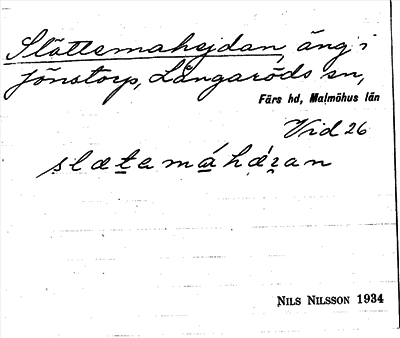 Slättemahejdan, äng i
Jönstorp, Långaröds sn,
Färs hd, Malmöhus län
Vid 26
slætemáhǽran
NILS NILSSON 1934